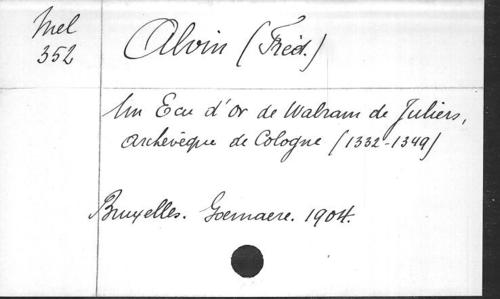 Mel
352
Alvin (Fréd.)
Un Ecu d'or de Walram de Juliers,
Archevêque de Cologne (1332-1349)
Bruxelles. Goemaere. 1904.